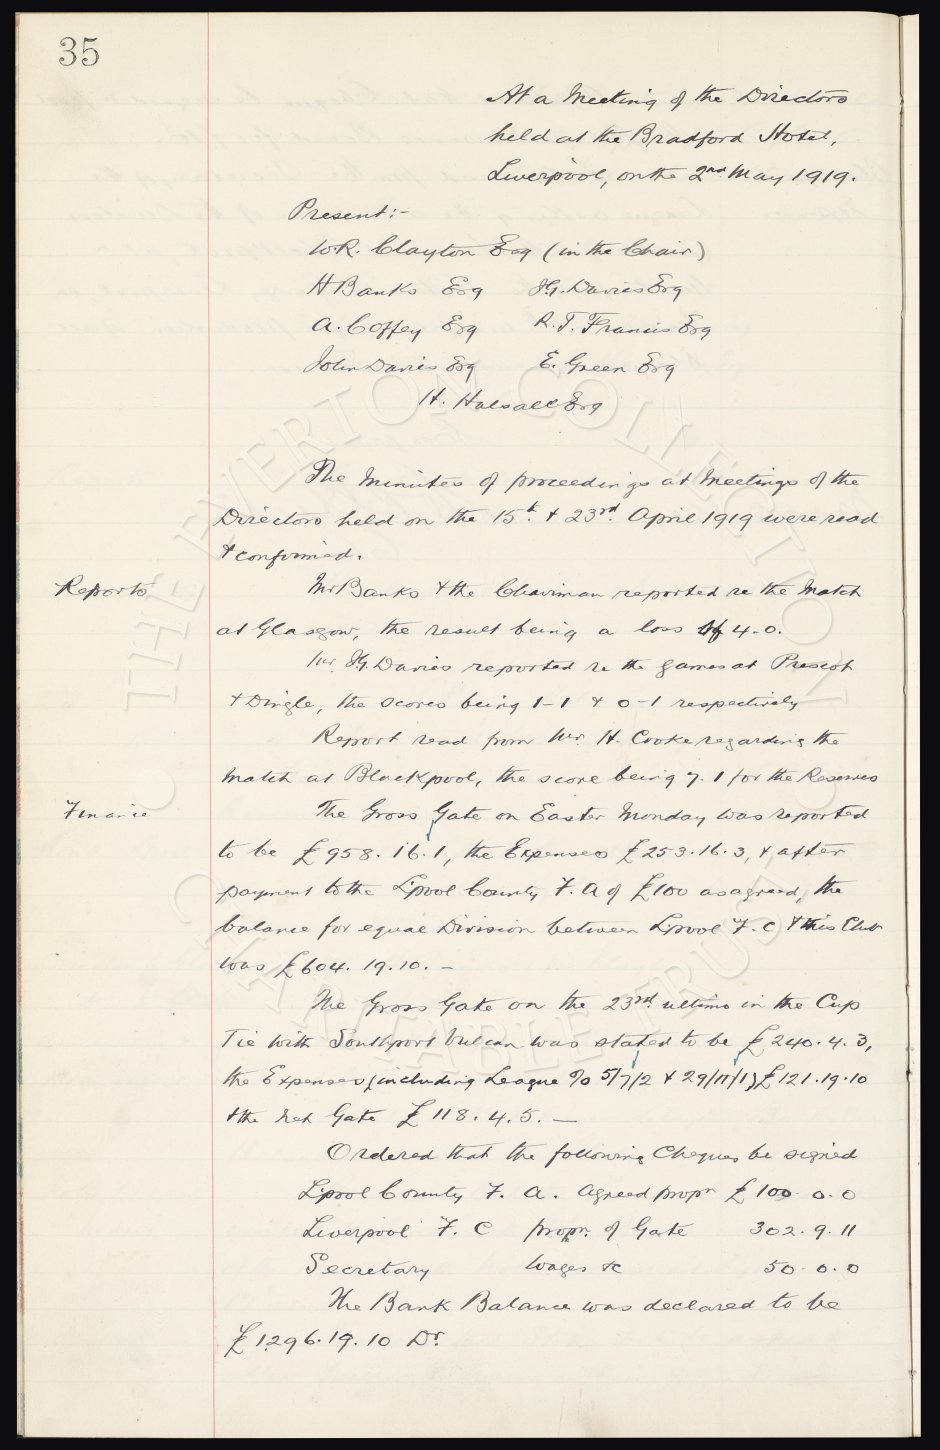 35
At a Meeting of the Directors
held at the Bradford Hotel,
Liverpool, on the 2nd May 1919.
Present:-
W.R. Clayton Esq (in the Chair)
H Banks Esq J.G. Davies Esq
A. Coffey Esq R. T. Francis Esq
John Davies Esq E. Green Esq
H. Halsall Esq
The Minutes of proceedings at Meetings of the
Directors held on the 15th & 23rd April 1919 were read
& confirmed.
Reports Mr Banks & the Chairman reported re the Match
at Glasgow, the result being a loss of 4-0.
Mr. J.G. Davies reported re the games at Prescot
& Dingle, the scores being 1-1 & 0-1 respectively
Report read from Mr. H. Cooke regarding the
match at Blackpool, the score being 7.1 for the Reserves
Finance The Gross Gate on Easter Monday was reported
to be £958.16.1, the Expenses £253.16.3, & after
payment to the L'pool County F.A of £100 as agreed, the
balance for equal Division between L'pool F.C & this Club
was £604.19.10.-
The Gross Gate on the 23rd ultimo in the Cup
Tie with Southport Vulcan was stated to be £240.4.3,
the Expenses (including League % 5/7/2 & 29/11/1) £121.19.10
& the net Gate £118.4.5.-
Ordered that the following Cheques be signed
L'pool County F. A. Agreed propn £100.0.0
Liverpool F. C propn. of Gate 302.9.11
Secretary Wages &c 50.0.0
The Bank Balance was declared to be
£1296.19.10 Dr.
THE EVERTON COLLECTION
CHARITABLE TRUST